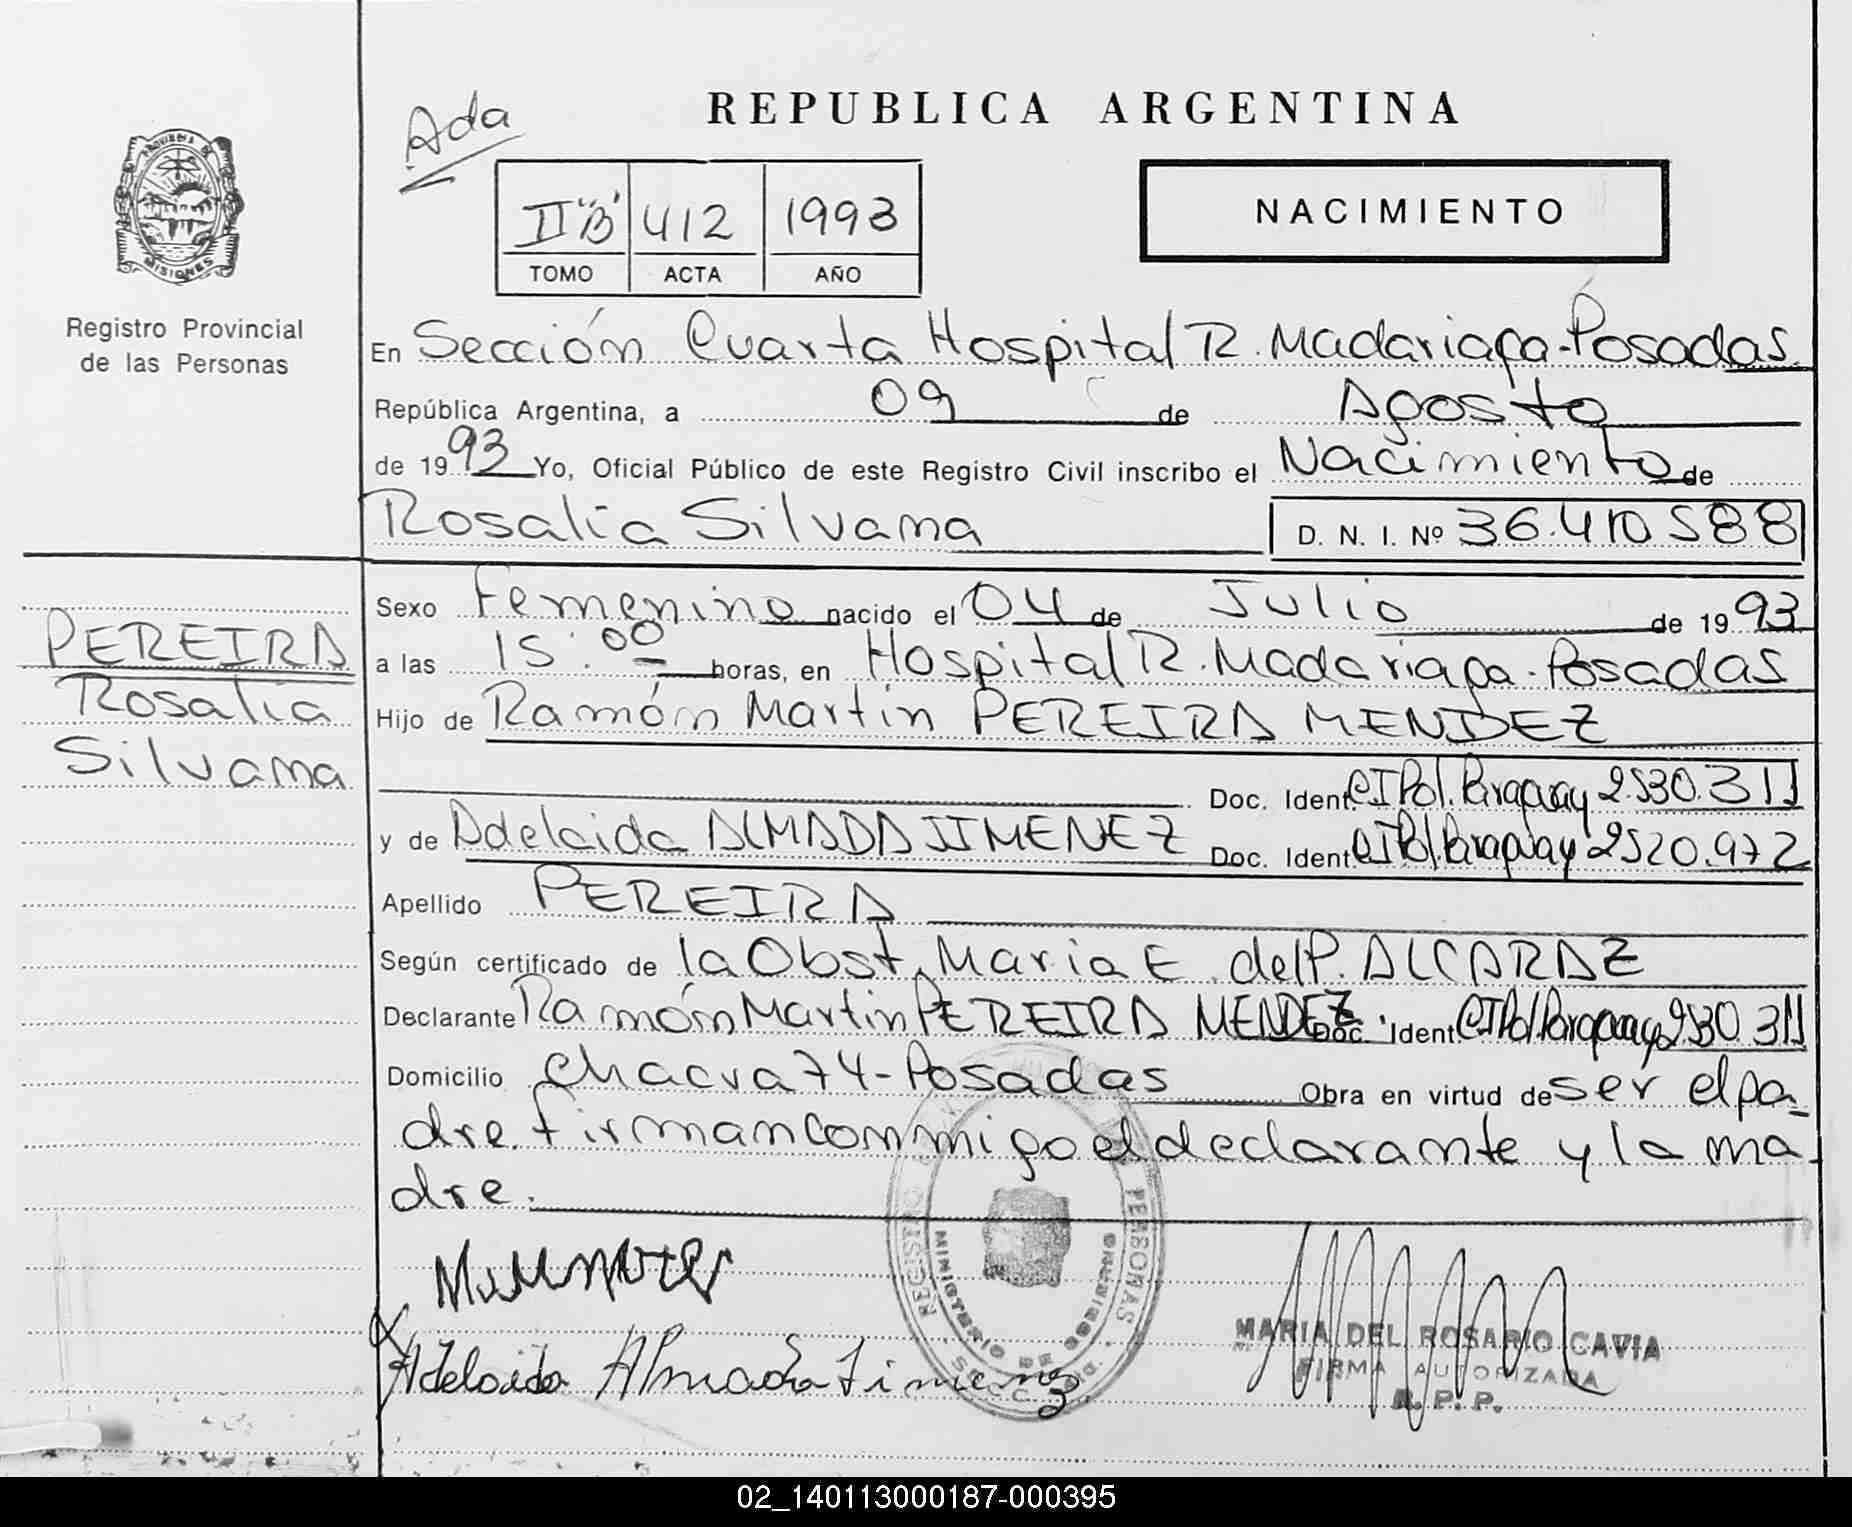 REPUBLICA ARGENTINA
Ada
II "B" 412 1993
TOMO ACTA AÑO
NACIMIENTO
PROVINCIA DE
MISIONES
Registro Provincial
de las Personas
En Sección Cuarta Hospital R. Madariaga-Posadas
República Argentina, a 09 de Agosto
de 1993 Yo, Oficial Público de este Registro Civil inscribo el Nacimiento de
Rosalia Silvana D. N. I. Nº 36.410588
PEREIRA
Rosalia
Silvana
Sexo Femenino nacido el 04 de Julio de 1993
a las 15:00 horas, en Hospital R. Madariaga-Posadas
Hijo de Ramón Martin PEREIRA MENDEZ
Doc. Ident. CIPol. Paraguay 2.530.311
y de Adelaida ALMADA JIMENEZ Doc. Ident CIPol. Paraguay 2520.972
Apellido PEREIRA
Según certificado de la Obst. Maria E. del P. ALCARAZ
Declarante Ramón Martin PEREIRA MENDEZ. Doc. Ident. CIPol. Paraguay 2.530.311
Domicilio Chacra 74-Posadas Obra en virtud de ser el pa-
dre. firman conmigo el declarante y la ma-
dre.
REGISTRO PERSONAS
MINISTERIO DE GOBIERNO
Adelaida Almada Jimenez
MARIA DEL ROSARIO CAVIA
FIRMA AUTORIZADA
R. P. P.
02_140113000187-000395